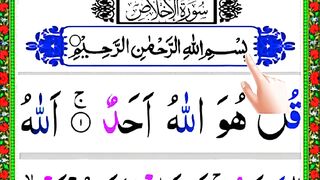 سُوْرَةُ الْاِخْلَاصِ
بِسْمِ اللهِ الرَّحْمٰنِ الرَّحِيْمِ
قُلْ هُوَ اللهُ اَحَدٌ ۚ ۝١ اَللهُ